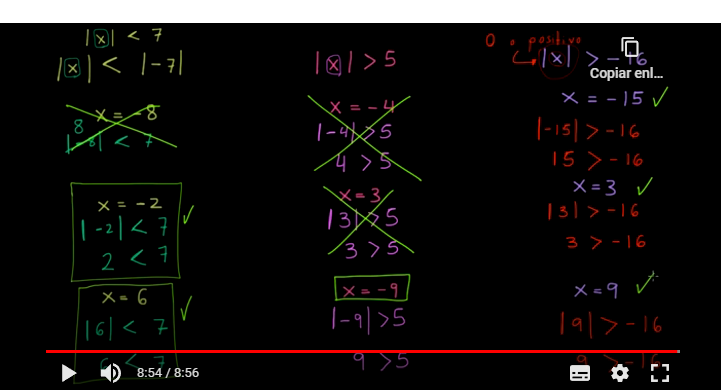 |x| < 7
|x| < |-7|
x = -8
8
|-8| < 7
x = -2
|-2| < 7
2 < 7
x = 6
|6| < 7
6 < 7
|x| > 5
x = -4
|-4| > 5
4 > 5
x = 3
|3| > 5
3 > 5
x = -9
|-9| > 5
9 > 5
0 o positivo
|x| > -16
Copiar enl...
x = -15 ✓
|-15| > -16
15 > -16
x = 3 ✓
|3| > -16
3 > -16
x = 9 ✓
|9| > -16
9 > -16
8:54 / 8:56